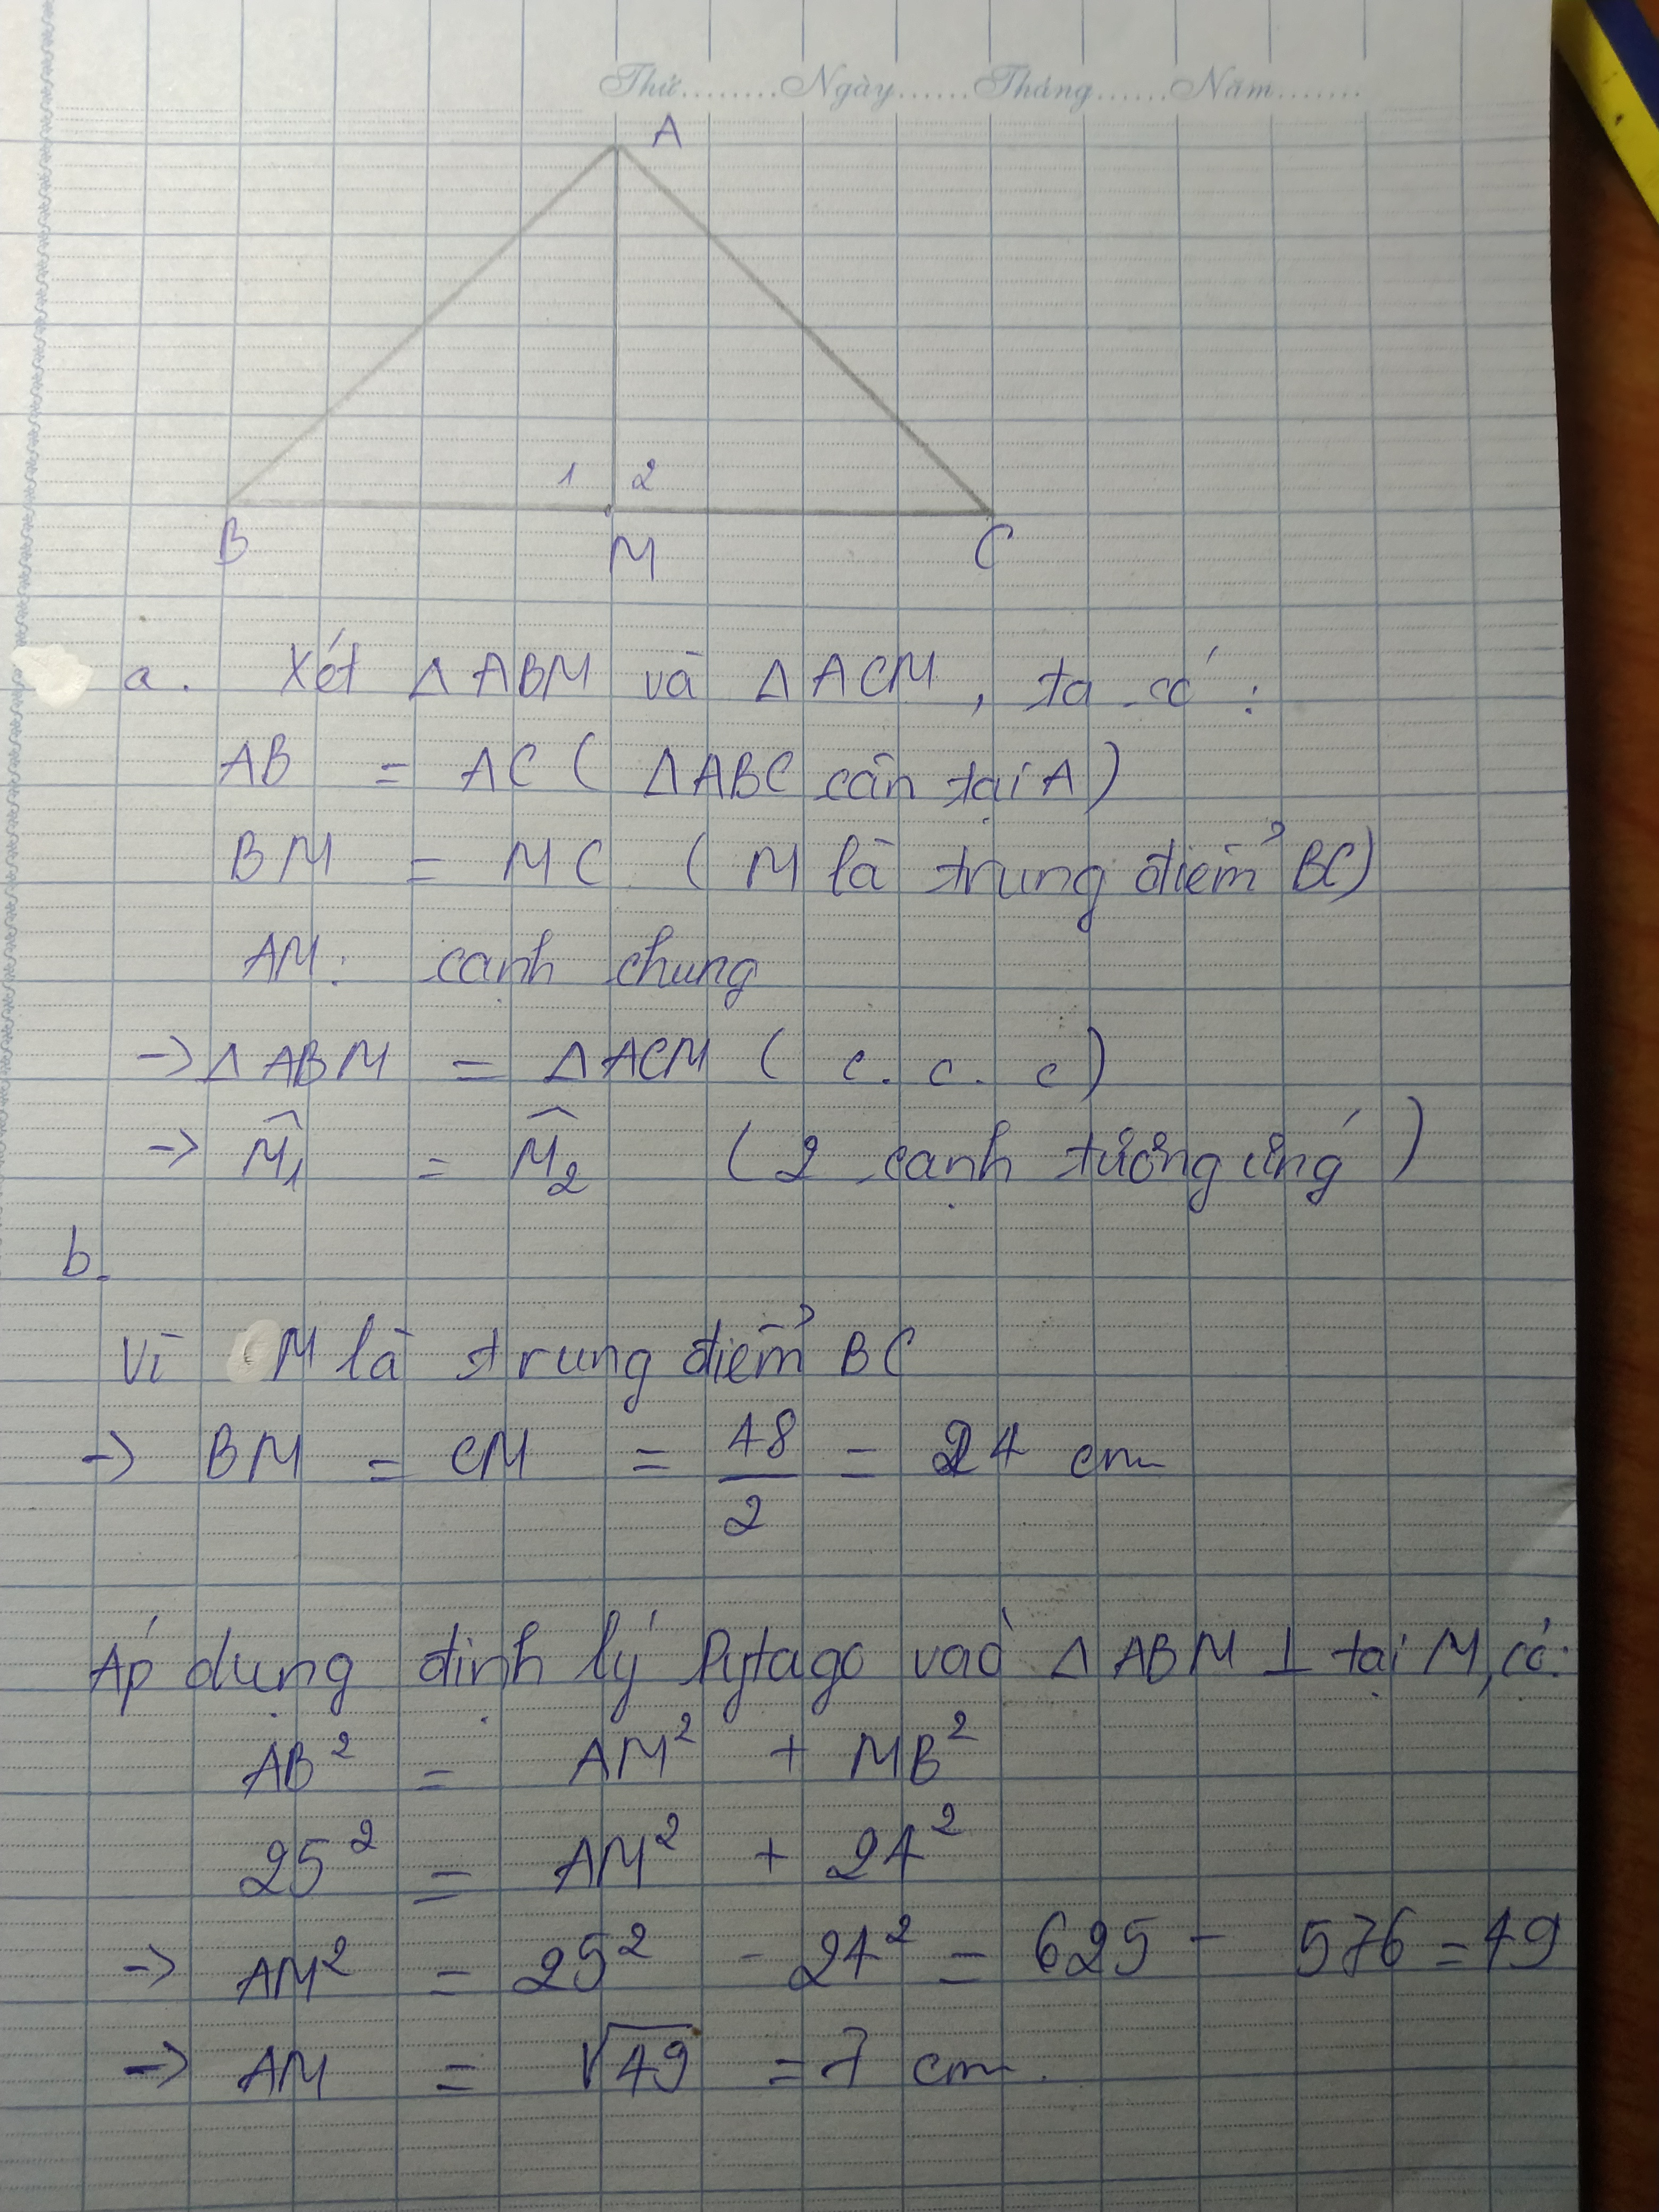 Thứ........Ngày......Tháng......Năm.......
A
1 2
B M C
a. Xét Δ ABM và Δ ACM, ta có :
AB = AC ( ΔABC cân tại A)
BM = MC ( M là trung điểm BC)
AM : cạnh chung
-> Δ ABM = Δ ACM ( c. c. c)
-> M̂₁ = M̂₂ ( 2 cạnh tương ứng )
b.
Vì M là trung điểm BC
-> BM = CM = 48/2 = 24 cm
Áp dụng định lý Pytago vào Δ ABM ⊥ tại M, có:
AB² = AM² + MB²
25² = AM² + 24²
-> AM² = 25² - 24² = 625 - 576 = 49
-> AM = √49 = 7 cm.